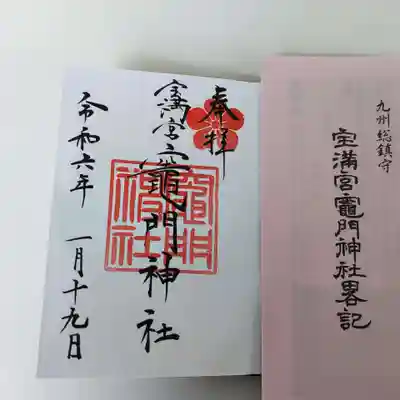 奉拝
宝満宮竈門神社
竈門神社
令和六年 一月十九日
九州総鎮守
宝満宮竈門神社畧記